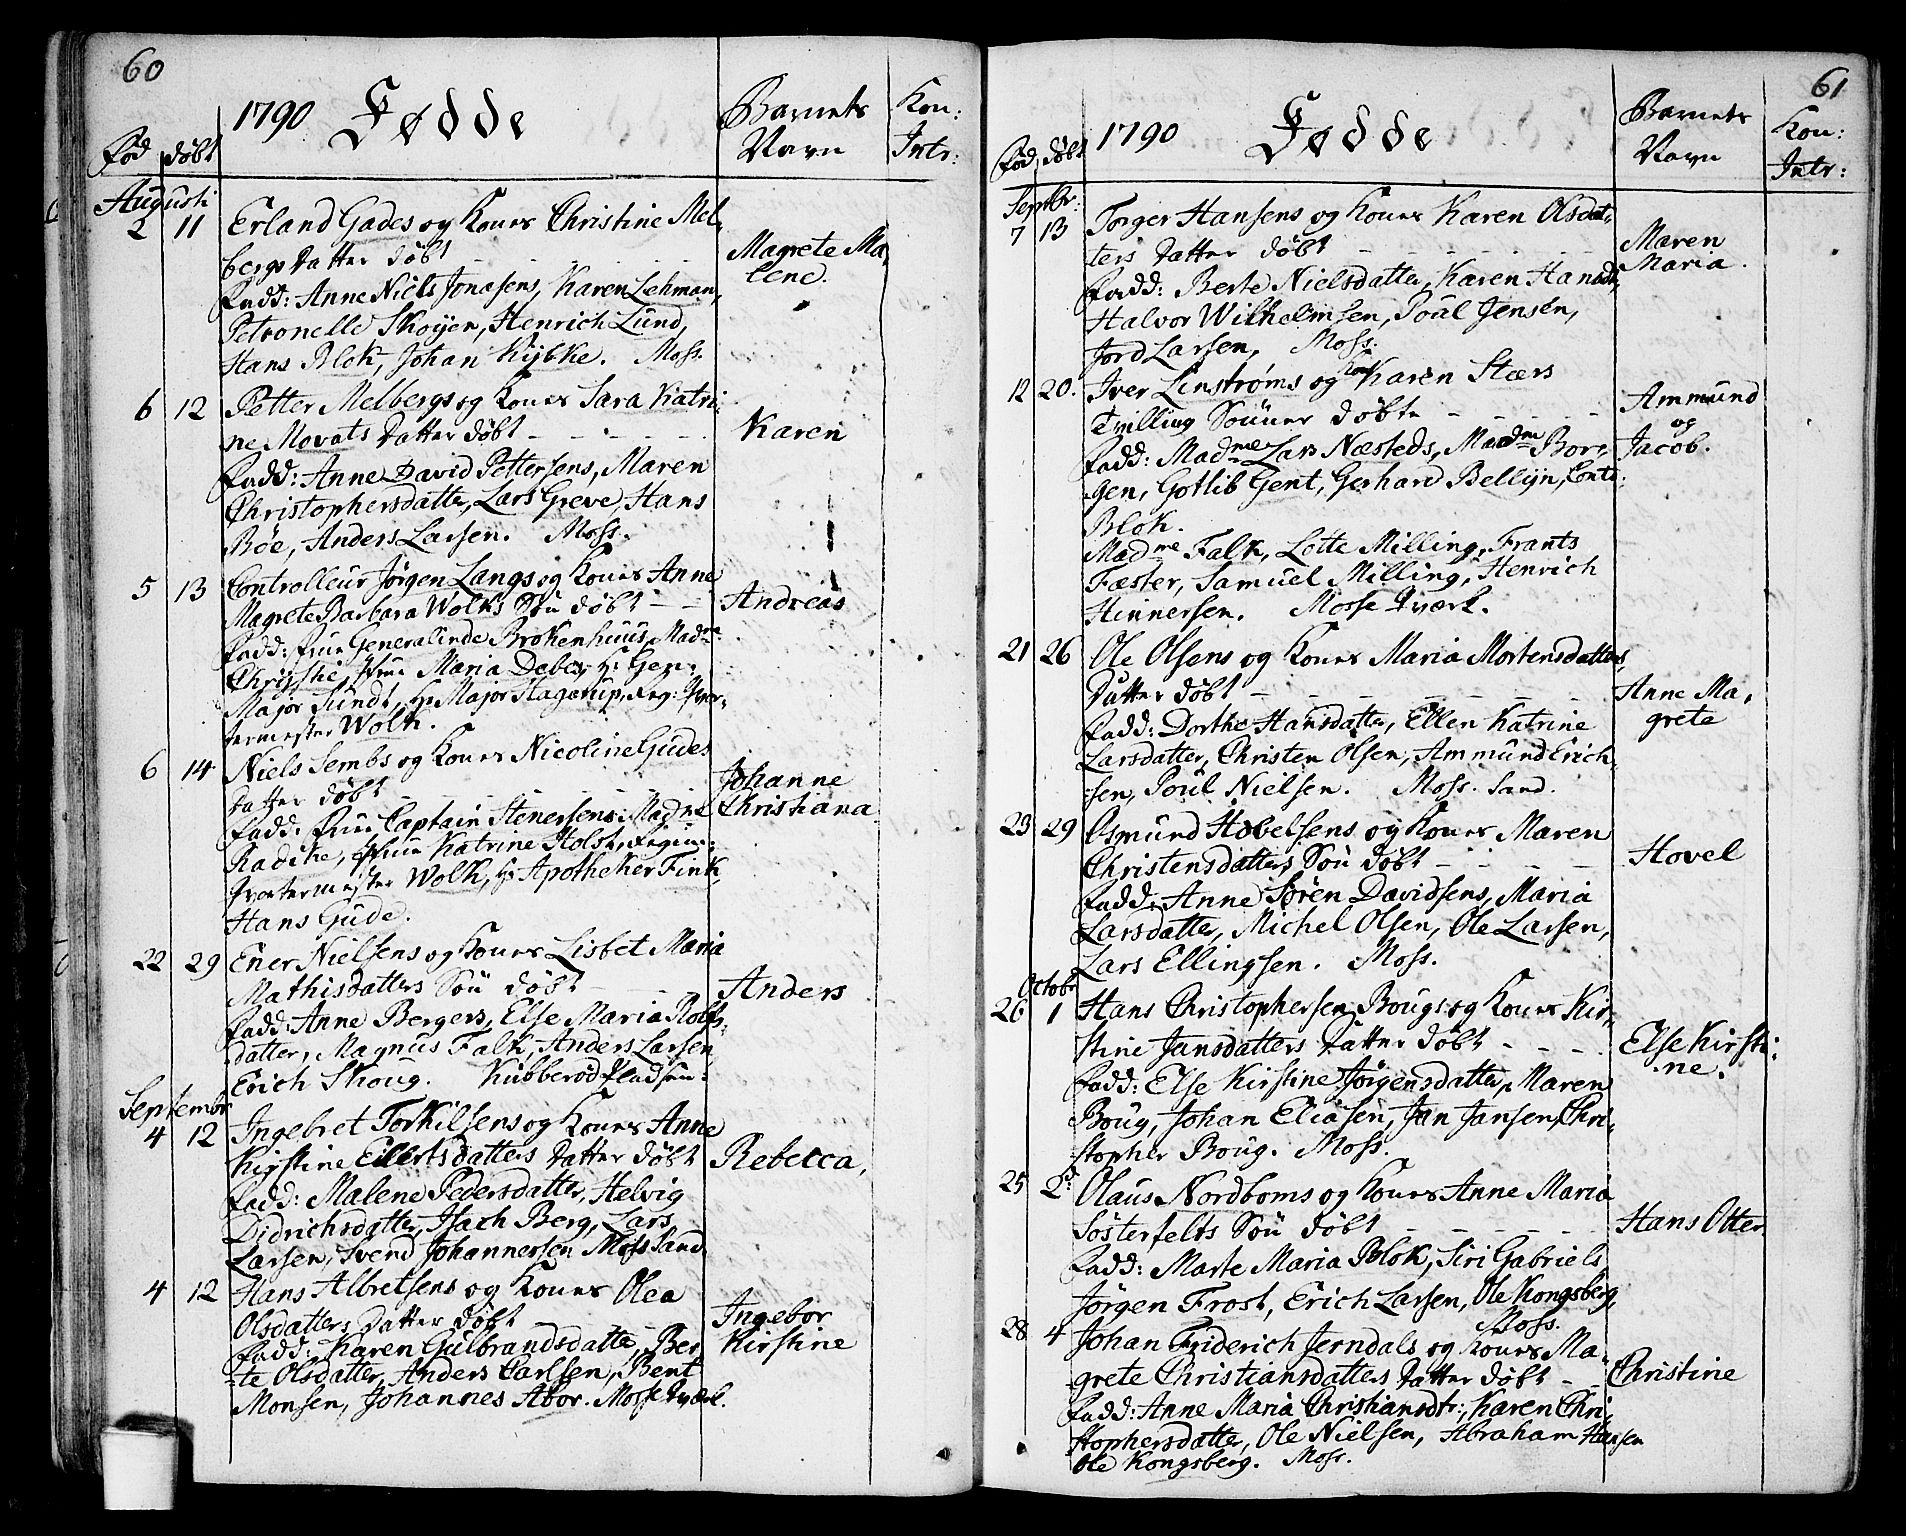 60
1790 Fødde
Barnets Navn
Kon: Intr:
Fød døbt
Augusti
2 11 Erland Gades og Kones Christine Mel-
bergs Datter døbt - - - - -
Magrete Ma-
lene.
Fadd: Anne Niels Jonasens, Karen Lehman,
Petronelle Skoyen, Henrich Lund,
Hans Blok, Johan Rybke. Moss.
6 12 Petter Melbergs og Kones Sara Katri-
ne Movats Datter døbt - - - -
Karen
Fadd: Anne David Pettersens, Maren
Christophersdatter, Lars Greve, Hans
Böe, Anders Larsen. Moss.
5 13 Controlleur Jørgen Langs og Kones Anne
Magrete Barbara Wolks Søn døbt - -
Andreas
Fadd: Frue Generalinde Brokenhuus, Madme
Chrystie, Frue Maria Debes, Hr Gen:
Major Sundt, Hr Major Stagerup, Reg: Qvar-
termester Wolk.
6 14 Niels Sembs og Kones Nicoline Gudes
Datter døbt - - - - -
Johanne
Christiana
Fadd: Frue Captain Stenersens, Madme
Radike, Frue Katrine Holst, Regim:
Qvartermester Wolk, Hr Apotheker Fink,
Hans Gude.
22 29 Ener Nielsens og Kones Lisbet Maria
Mathisdatters Søn døbt - - -
Anders
Fadd: Anne Bergers, Else Maria Rolfs-
datter, Magnus Falk, Anders Larsen,
Erich Skoug. Kubberød Pladsen:
Septembr
4 12 Ingebret Torkilsens og Kones Anne
Kirstine Eilertsdatters Datter døbt
Rebecca,
Fadd: Malene Pedersdatter, Helvig
Didrichsdatter, Isach Berg, Lars
Larsen, Svend Johannersen. Moss Sand
4 12 Hans Albretsens og Kones Olea
Olsdatters Datter døbt
Ingebor
Kirstine
Fadd: Karen Gulbrandsdatter, Ber-
te Olsdatter, Anders Carlsen, Bent
Monsen, Johannes Abor. Mosse Qværk.
61
1790 Fødde
Barnets Navn
Kon: Intr:
Fød døbt
Septbr:
7 13 Torger Hansens og Kones Karen Olsdat-
ters Datter døbt - - - - -
Maren
Maria.
Fadd: Berte Nielsdatter, Karen Hansdt,
Halvor Wilhelmsen, Poul Jensen,
Jord Larsen, Moss.
12 20. Iver Linstrøms og Kones Karen Stærs
Tvilling Sønner døbte - - - - -
Ammund
og
Jacob.
Fadd: Madme Lars Næsteds, Madme Bor-
gen, Gotlib Gent, Gerhard Bellyn, Conts:
Blok.
Madme Falk, Lotte Milling, Frants
Fæster, Samuel Milling, Henrich
Hinnersen. Mosse Qværk.
21 26 Ole Olsens og Kones Maria Mortensdatters
Datter døbt - - - - - -
Anne Ma-
grete
Fadd: Dorthe Hansdatter, Ellen Katrine
Larsdatter, Christen Olsen, Ammund Erich-
sen, Poul Nielsen. Moss. Sand.
23 29 Osmund Hovelsens og Kones Maren
Christensdatters Søn døbt - - - - -
Hovel
Fadd: Anne Søren Davidsens, Maria
Larsdatter, Michel Olsen, Ole Larsen,
Lars Ellingsen. Moss.
Octobr
26 1 Hans Christophersen Bougs og Kones Kir-
stine Jansdatters Datter døbt - - - -
Else Kirsti-
ne.
Fadd: Else Kirstine Jørgensdatter, Maren
Boug, Johan Eliasen, Jan Jansen, Chri-
stopher Boug. Moss.
25 2d Olaus Nordboms og Kones Anne Maria
Sösterfelts Søn døbt - - - - -
Hans Otter
Fadd: Marte Maria Blok, Siri Gabriels
Jørgen Frost, Erich Larsen, Ole Kongsberg,
Moss.
28 4 Johan Friderich Jerndals og Kones Ma-
grete Christiansdatters Datter døbt - -
Christine
Fadd: Anne Maria Christiansdtr:, Karen Chri-
stophersdatter, Ole Nielsen, Abraham Hansen
Ole Kongsberg. Moss.